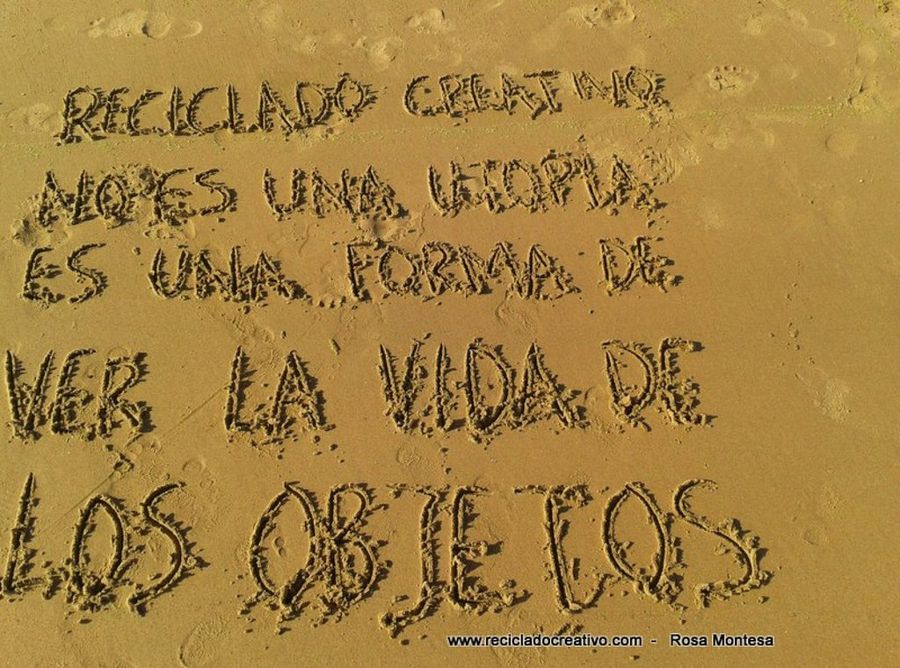 RECICLADO CREATIVO
NO ES UNA UTOPIA
ES UNA FORMA DE
VER LA VIDA DE
LOS OBJETOS
www.recicladocreativo.com - Rosa Montesa